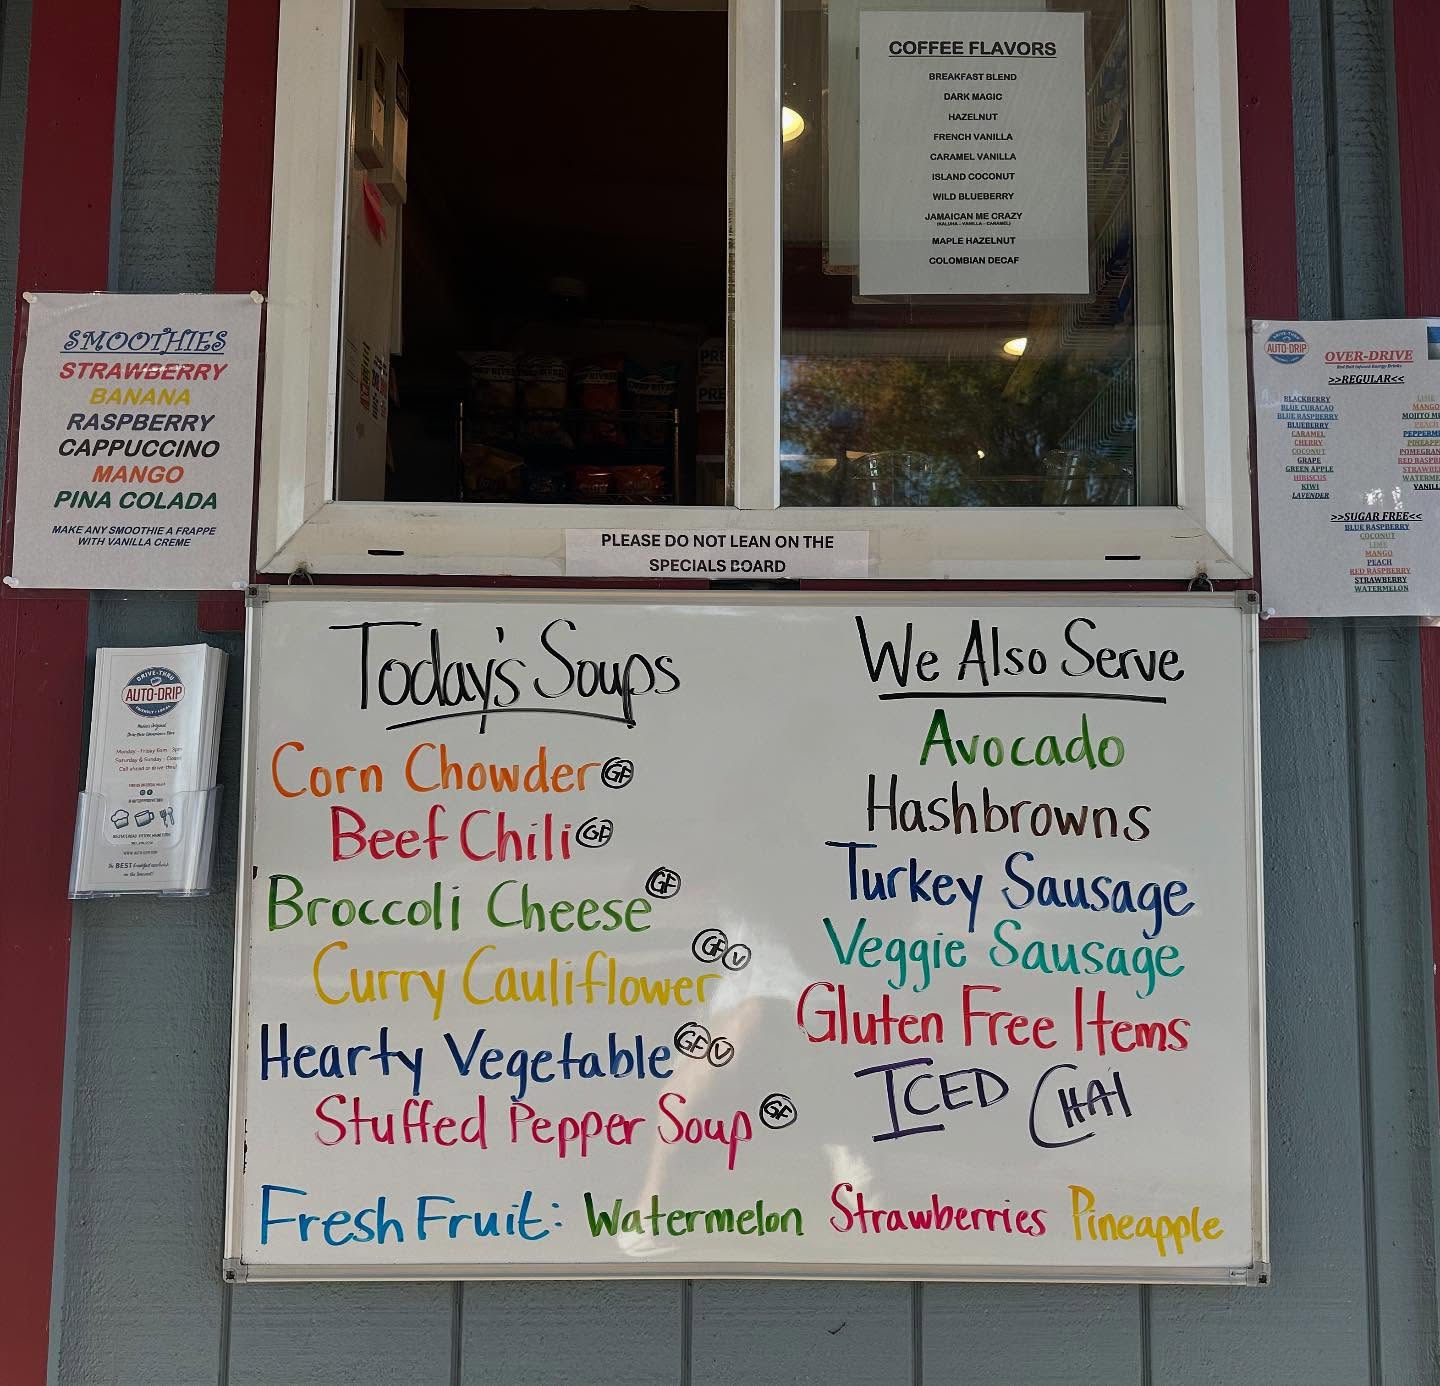 COFFEE FLAVORS
BREAKFAST BLEND
DARK MAGIC
HAZELNUT
FRENCH VANILLA
CARAMEL VANILLA
ISLAND COCONUT
WILD BLUEBERRY
JAMAICAN ME CRAZY
(KALUHA - VANILLA - CARAMEL)
MAPLE HAZELNUT
COLOMBIAN DECAF
SMOOTHIES
STRAWBERRY
BANANA
RASPBERRY
CAPPUCCINO
MANGO
PINA COLADA
MAKE ANY SMOOTHIE A FRAPPE
WITH VANILLA CREME
DRIVE-THRU
AUTO-DRIP
OVER-DRIVE
Red Bull Infused Energy Drinks
>>REGULAR<<
BLACKBERRY
BLUE CURACAO
BLUE RASPBERRY
BLUEBERRY
CARAMEL
CHERRY
COCONUT
GRAPE
GREEN APPLE
HIBISCUS
KIWI
LAVENDER
LIME
MANGO
MOJITO M
PEACH
PEPPERM
PINEAPP
POMEGRAN
RED RASPB
STRAWBE
WATERME
VANILL
>>SUGAR FREE<<
BLUE RASPBERRY
COCONUT
LIME
MANGO
PEACH
RED RASPBERRY
STRAWBERRY
WATERMELON
PLEASE DO NOT LEAN ON THE
SPECIALS BOARD
DRIVE-THRU
AUTO-DRIP
Monday - Friday 6am - 3pm
Saturday & Sunday - Closed
Call ahead or drive-thru!
the BEST breakfast sandwich
Today's Soups
Corn Chowder GF
Beef Chili GF
Broccoli Cheese GF
Curry Cauliflower GF V
Hearty Vegetable GF V
Stuffed Pepper Soup GF
We Also Serve
Avocado
Hashbrowns
Turkey Sausage
Veggie Sausage
Gluten Free Items
ICED CHAI
Fresh Fruit: Watermelon Strawberries Pineapple